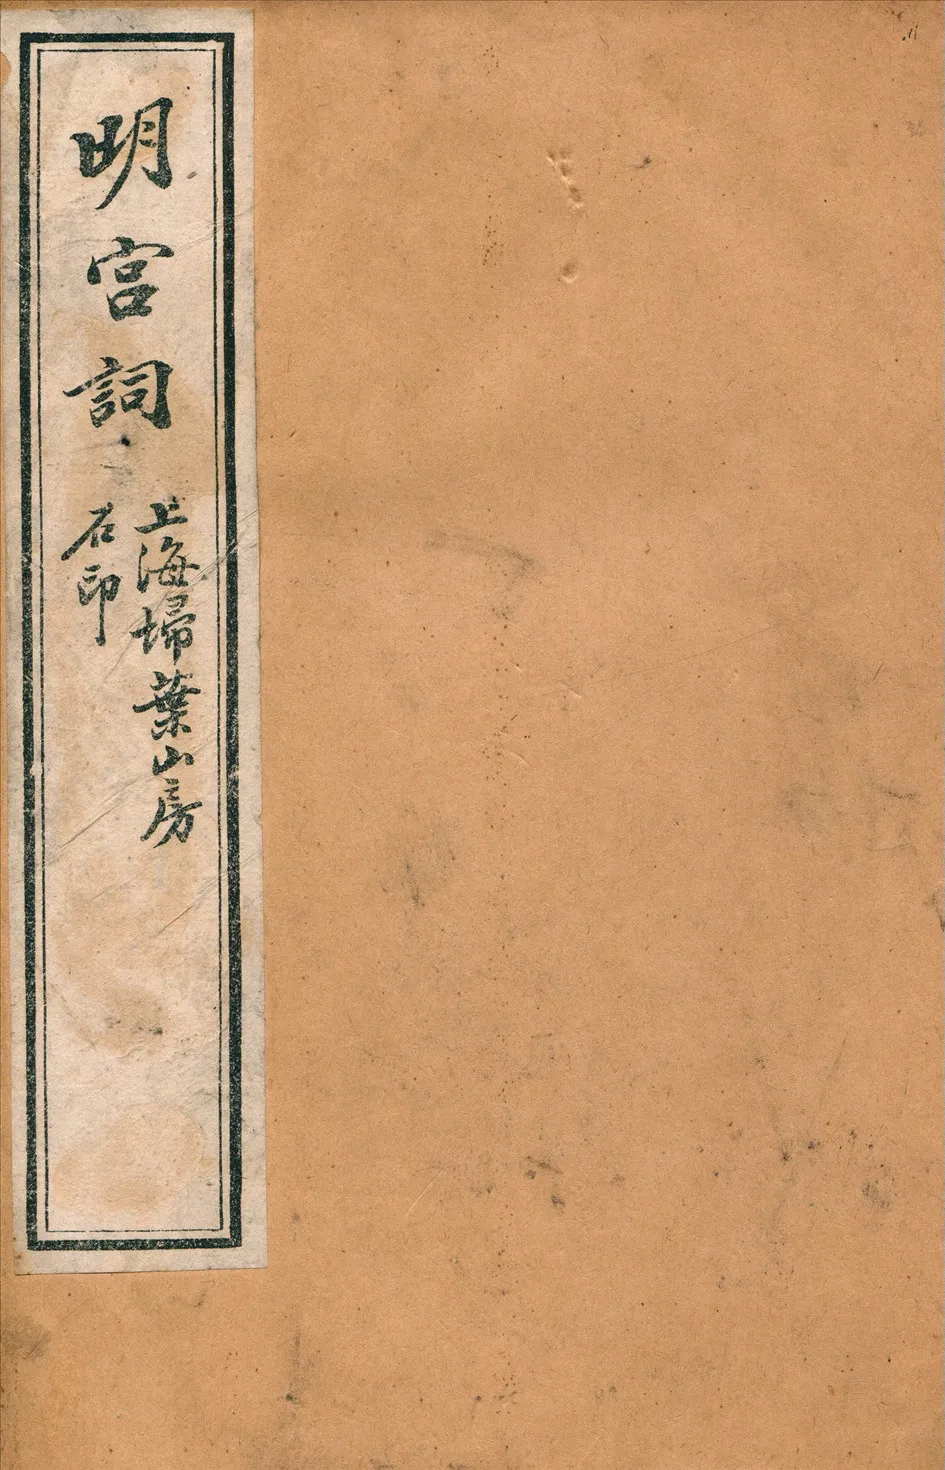 明宮詞
上海埽葉山房
石印